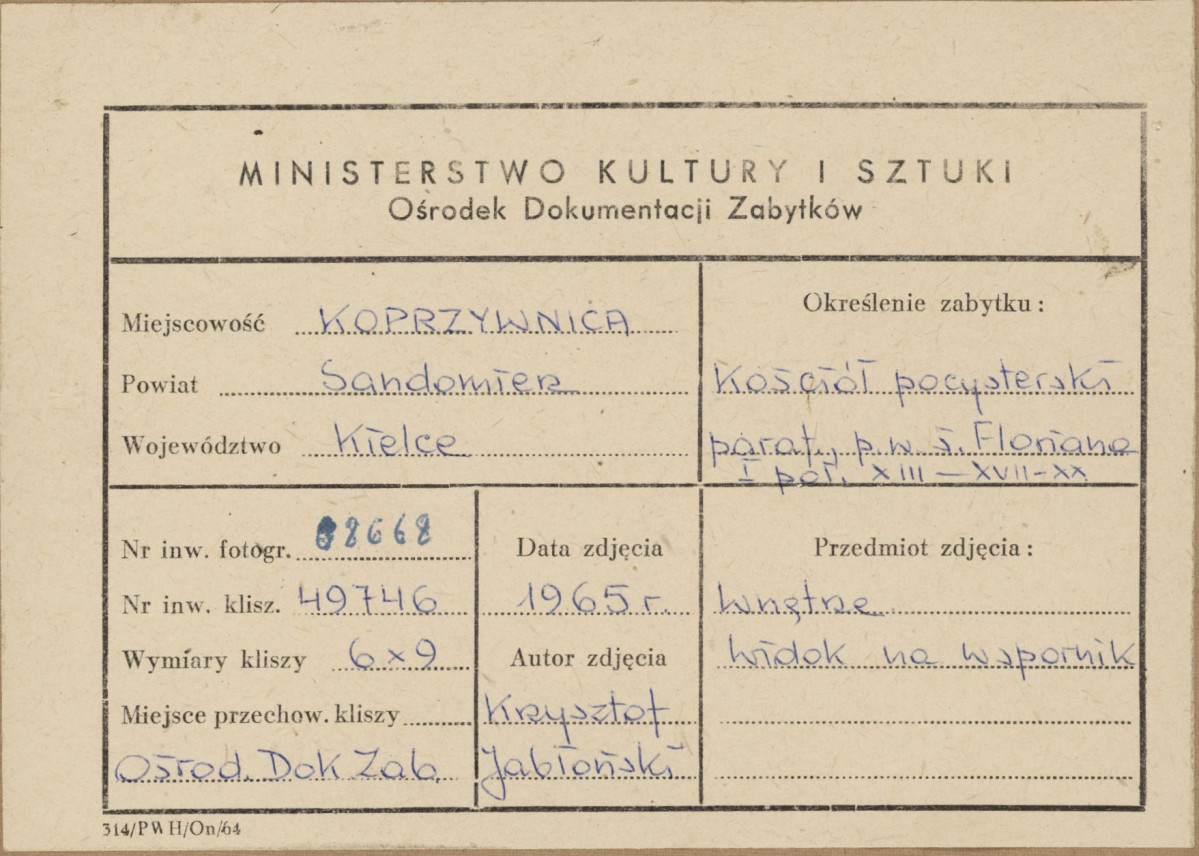 MINISTERSTWO KULTURY I SZTUKI
Ośrodek Dokumentacji Zabytków
Miejscowość KOPRZYWNICA
Powiat Sandomierz
Województwo Kielce
Określenie zabytku:
Kościół pocysterski
paraf., p.w. ś. Floriana
I poł. XIII – XVII-XX
Nr inw. fotogr. 8668
Nr inw. klisz. 49746
Wymiary kliszy 6x9
Miejsce przechow. kliszy
Ośrod. Dok Zab.
Data zdjęcia
1965 r.
Autor zdjęcia
Krzysztof
Jabłoński
Przedmiot zdjęcia:
Wnętrze
widok na wspornik
314/PWH/On/64